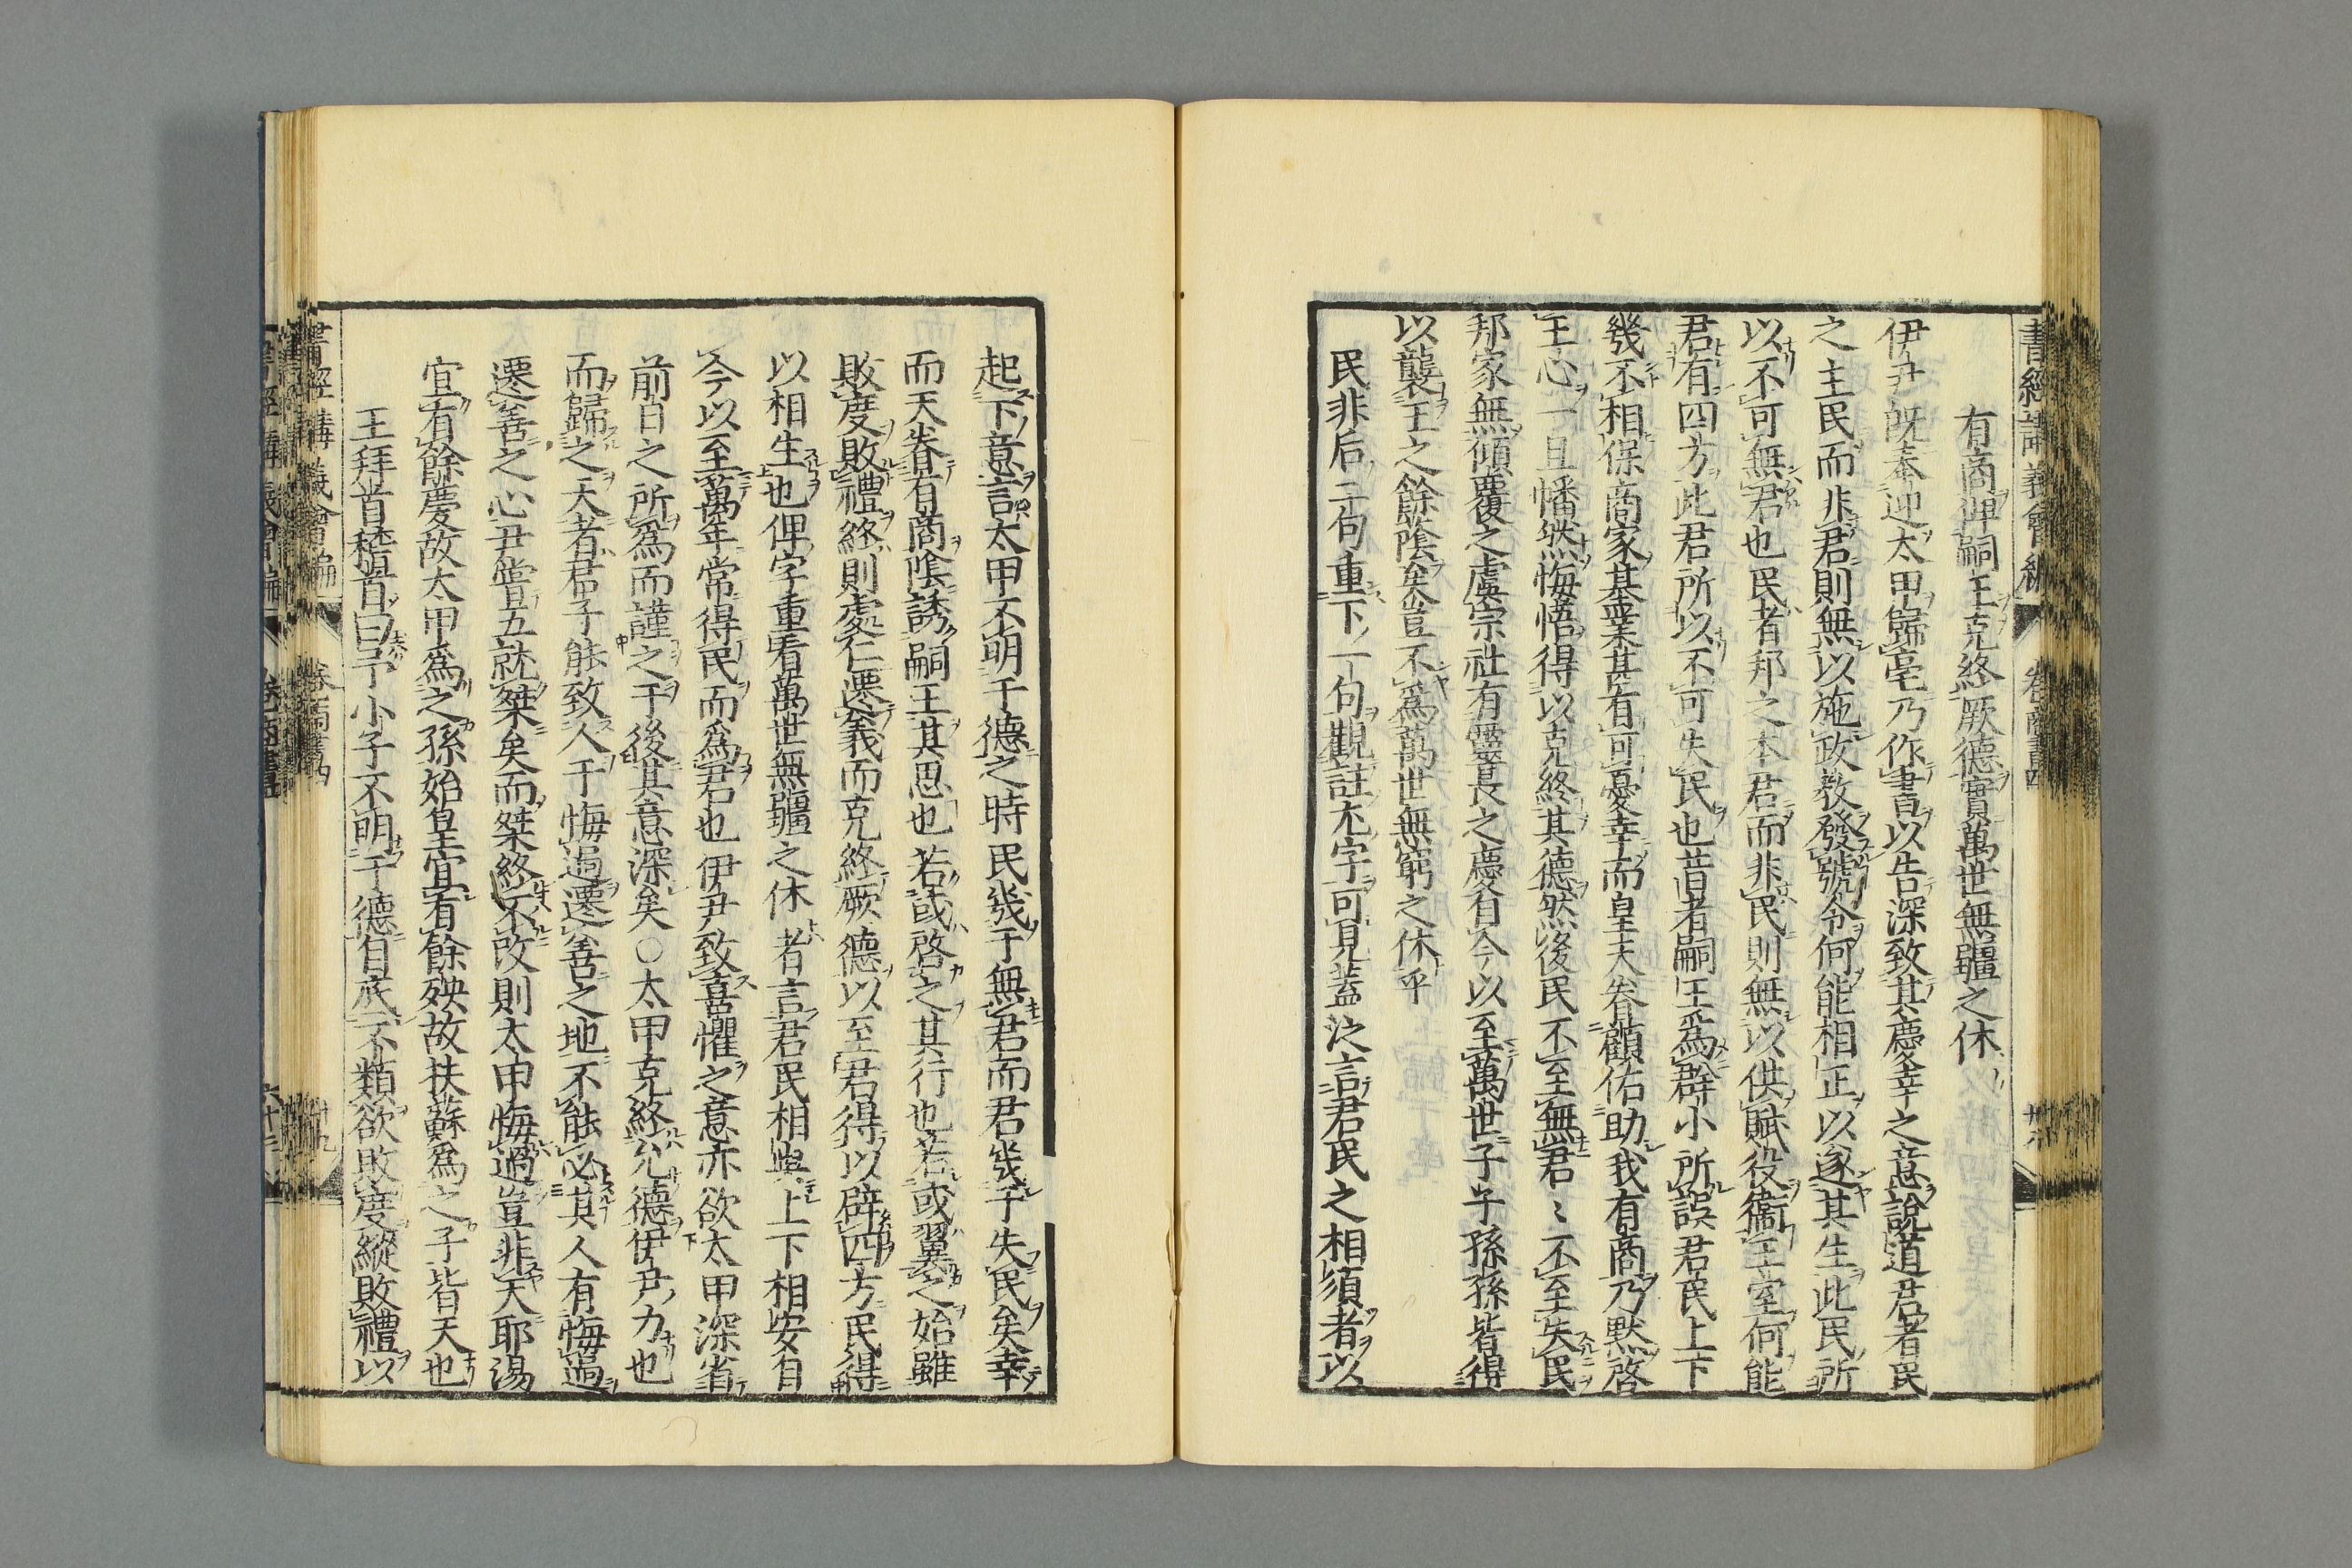 書經講義會編 卷 商書四 卅八
有商俾嗣王克終厥德實萬世無疆之休
伊尹既奉迎太甲歸亳乃作書以告深致其慶幸之意說道君者民
之主民而非君則無以施政教發號令何能相正以遂其生此民所
以不可無君也民者邦之本君而非民則無以供賦役衞王室何能
君有四方此君所以不可失民也昔者嗣王爲群小所誤君民上下
幾不相保商家基業甚有可憂幸而皇天眷顧佑助我有商乃默啓
王心一旦幡然悔悟得以克終其德然後民不至無君〻不至失民
邦家無傾覆之虞宗社有靈長之慶自今以至萬世子子孫孫皆得
以襲王之餘蔭矣豈不爲萬世無窮之休乎
民非后二句重下一句觀註尢字可見蓋泛言君民之相須者以
起下意言太甲不明于德之時民幾于無君而君幾于失民矣幸
而天眷有商陰誘嗣王其思也若或啓之其行也若或翼之始雖
敗度敗禮終則處仁遷義而克終厥德以至君得以辟四方民得
以相生也俾字重看萬世無疆之休者言君民相與上下相安自
今以至萬年常得民而爲君也伊尹致喜懼之意亦欲太甲深省
前日之所爲而謹之于後其意深矣○太甲克終允德伊尹力也
而歸之天者君子能致人于悔過遷善之地不能必其人有悔過
遷善之心尹嘗五就桀矣而桀終不改則太甲悔過豈非天耶湯
宜有餘慶故太甲爲之孫始皇宜有餘殃故扶蘇爲之子皆天也
王拜首稽首曰予小子不明于德自厎不類欲敗度縱敗禮以
書經講義會編 卷 商書四 卅九